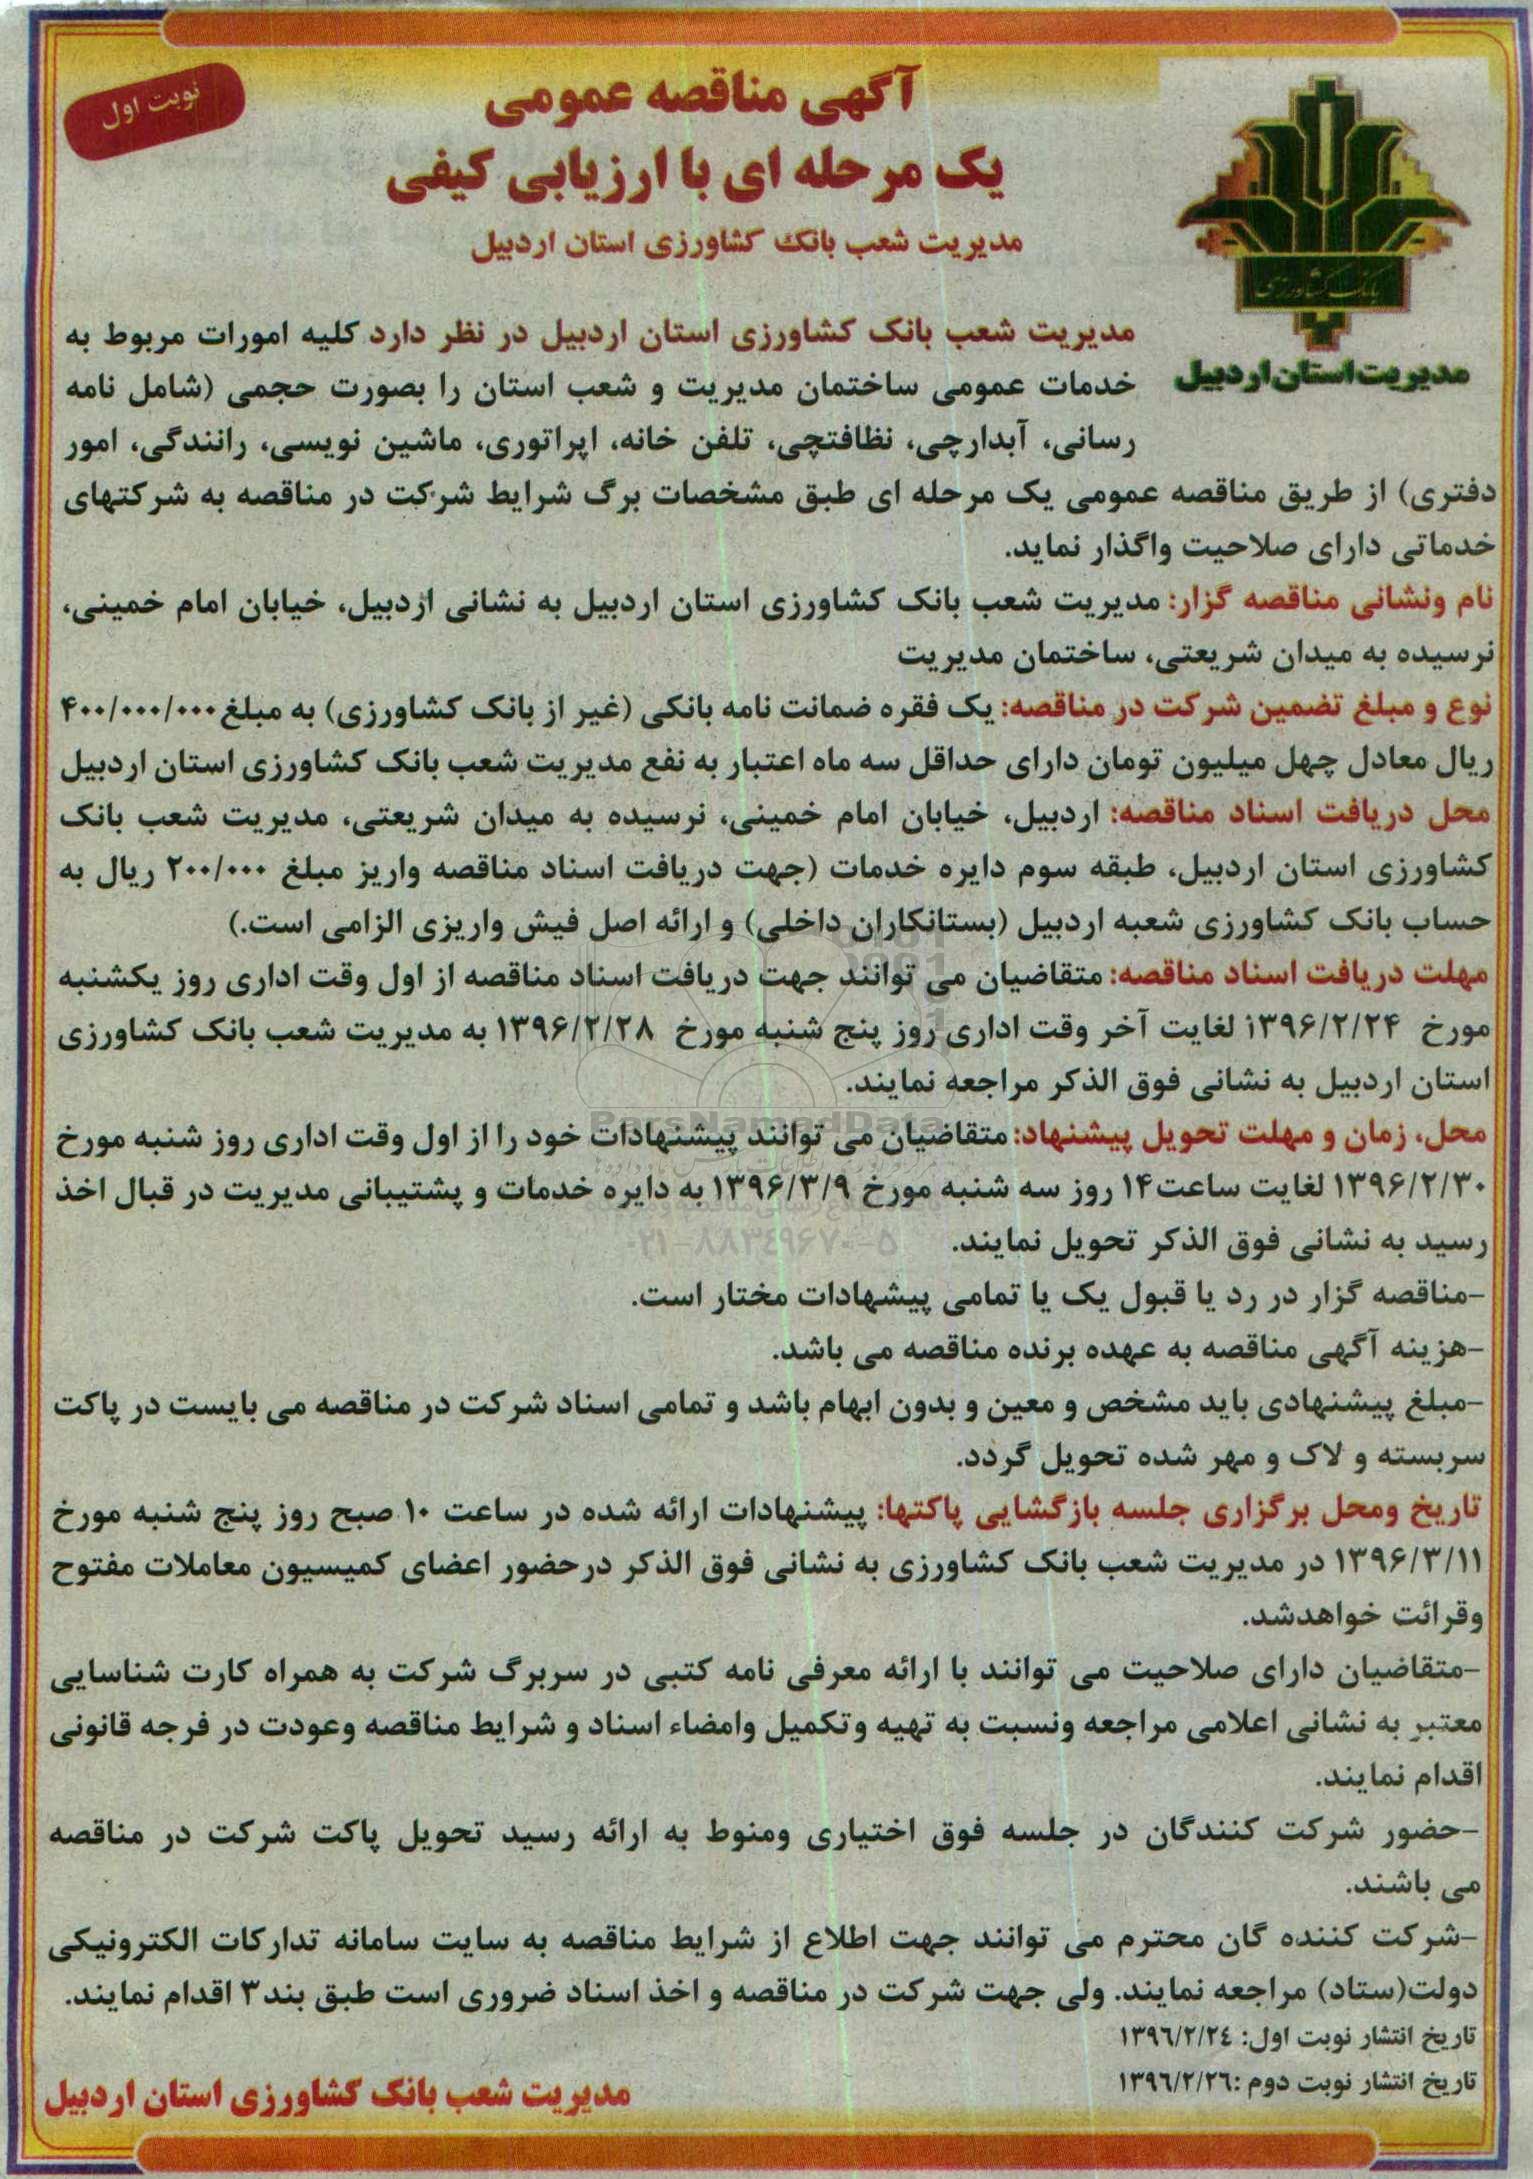 نوبت اول
آگهی مناقصه عمومی
یک مرحله ای با ارزیابی کیفی
مدیریت شعب بانک کشاورزی استان اردبیل
بانک کشاورزی
مدیریت استان اردبیل
مدیریت شعب بانک کشاورزی استان اردبیل در نظر دارد کلیه امورات مربوط به
خدمات عمومی ساختمان مدیریت و شعب استان را بصورت حجمی (شامل نامه
رسانی، آبدارچی، نظافتچی، تلفن خانه، اپراتوری، ماشین نویسی، رانندگی، امور
دفتری) از طریق مناقصه عمومی یک مرحله ای طبق مشخصات برگ شرایط شرکت در مناقصه به شرکتهای
خدماتی دارای صلاحیت واگذار نماید.
نام ونشانی مناقصه گزار: مدیریت شعب بانک کشاورزی استان اردبیل به نشانی اردبیل، خیابان امام خمینی،
نرسیده به میدان شریعتی، ساختمان مدیریت
نوع و مبلغ تضمین شرکت در مناقصه: یک فقره ضمانت نامه بانکی (غیر از بانک کشاورزی) به مبلغ ۴۰۰/۰۰۰/۰۰۰
ریال معادل چهل میلیون تومان دارای حداقل سه ماه اعتبار به نفع مدیریت شعب بانک کشاورزی استان اردبیل
محل دریافت اسناد مناقصه: اردبیل، خیابان امام خمینی، نرسیده به میدان شریعتی، مدیریت شعب بانک
کشاورزی استان اردبیل، طبقه سوم دایره خدمات (جهت دریافت اسناد مناقصه واریز مبلغ ۲۰۰/۰۰۰ ریال به
حساب بانک کشاورزی شعبه اردبیل (بستانکاران داخلی) و ارائه اصل فیش واریزی الزامی است.)
مهلت دریافت اسناد مناقصه: متقاضیان می توانند جهت دریافت اسناد مناقصه از اول وقت اداری روز یکشنبه
مورخ ۱۳۹۶/۲/۲۴ لغایت آخر وقت اداری روز پنج شنبه مورخ ۱۳۹۶/۲/۲۸ به مدیریت شعب بانک کشاورزی
استان اردبیل به نشانی فوق الذکر مراجعه نمایند.
ParsNamadData
محل، زمان و مهلت تحویل پیشنهاد: متقاضیان می توانند پیشنهادات خود را از اول وقت اداری روز شنبه مورخ
۱۳۹۶/۲/۳۰ لغایت ساعت۱۴ روز سه شنبه مورخ ۱۳۹۶/۳/۹ به دایره خدمات و پشتیبانی مدیریت در قبال اخذ
رسید به نشانی فوق الذکر تحویل نمایند.
۰۲۱-۸۸۳۴۹۶۷۰-۵
-مناقصه گزار در رد یا قبول یک یا تمامی پیشهادات مختار است.
-هزینه آگهی مناقصه به عهده برنده مناقصه می باشد.
-مبلغ پیشنهادی باید مشخص و معین و بدون ابهام باشد و تمامی اسناد شرکت در مناقصه می بایست در پاکت
سربسته و لاک و مهر شده تحویل گردد.
تاریخ ومحل برگزاری جلسه بازگشایی پاکتها: پیشنهادات ارائه شده در ساعت ۱۰ صبح روز پنج شنبه مورخ
۱۳۹۶/۳/۱۱ در مدیریت شعب بانک کشاورزی به نشانی فوق الذکر درحضور اعضای کمیسیون معاملات مفتوح
وقرائت خواهدشد.
-متقاضیان دارای صلاحیت می توانند با ارائه معرفی نامه کتبی در سربرگ شرکت به همراه کارت شناسایی
معتبر به نشانی اعلامی مراجعه ونسبت به تهیه وتکمیل وامضاء اسناد و شرایط مناقصه وعودت در فرجه قانونی
اقدام نمایند.
-حضور شرکت کنندگان در جلسه فوق اختیاری ومنوط به ارائه رسید تحویل پاکت شرکت در مناقصه
می باشند.
-شرکت کننده گان محترم می توانند جهت اطلاع از شرایط مناقصه به سایت سامانه تدارکات الکترونیکی
دولت(ستاد) مراجعه نمایند. ولی جهت شرکت در مناقصه و اخذ اسناد ضروری است طبق بند۳ اقدام نمایند.
تاریخ انتشار نوبت اول: ۱۳۹۶/۲/۲۴
تاریخ انتشار نوبت دوم :۱۳۹۶/۲/۲۶
مدیریت شعب بانک کشاورزی استان اردبیل